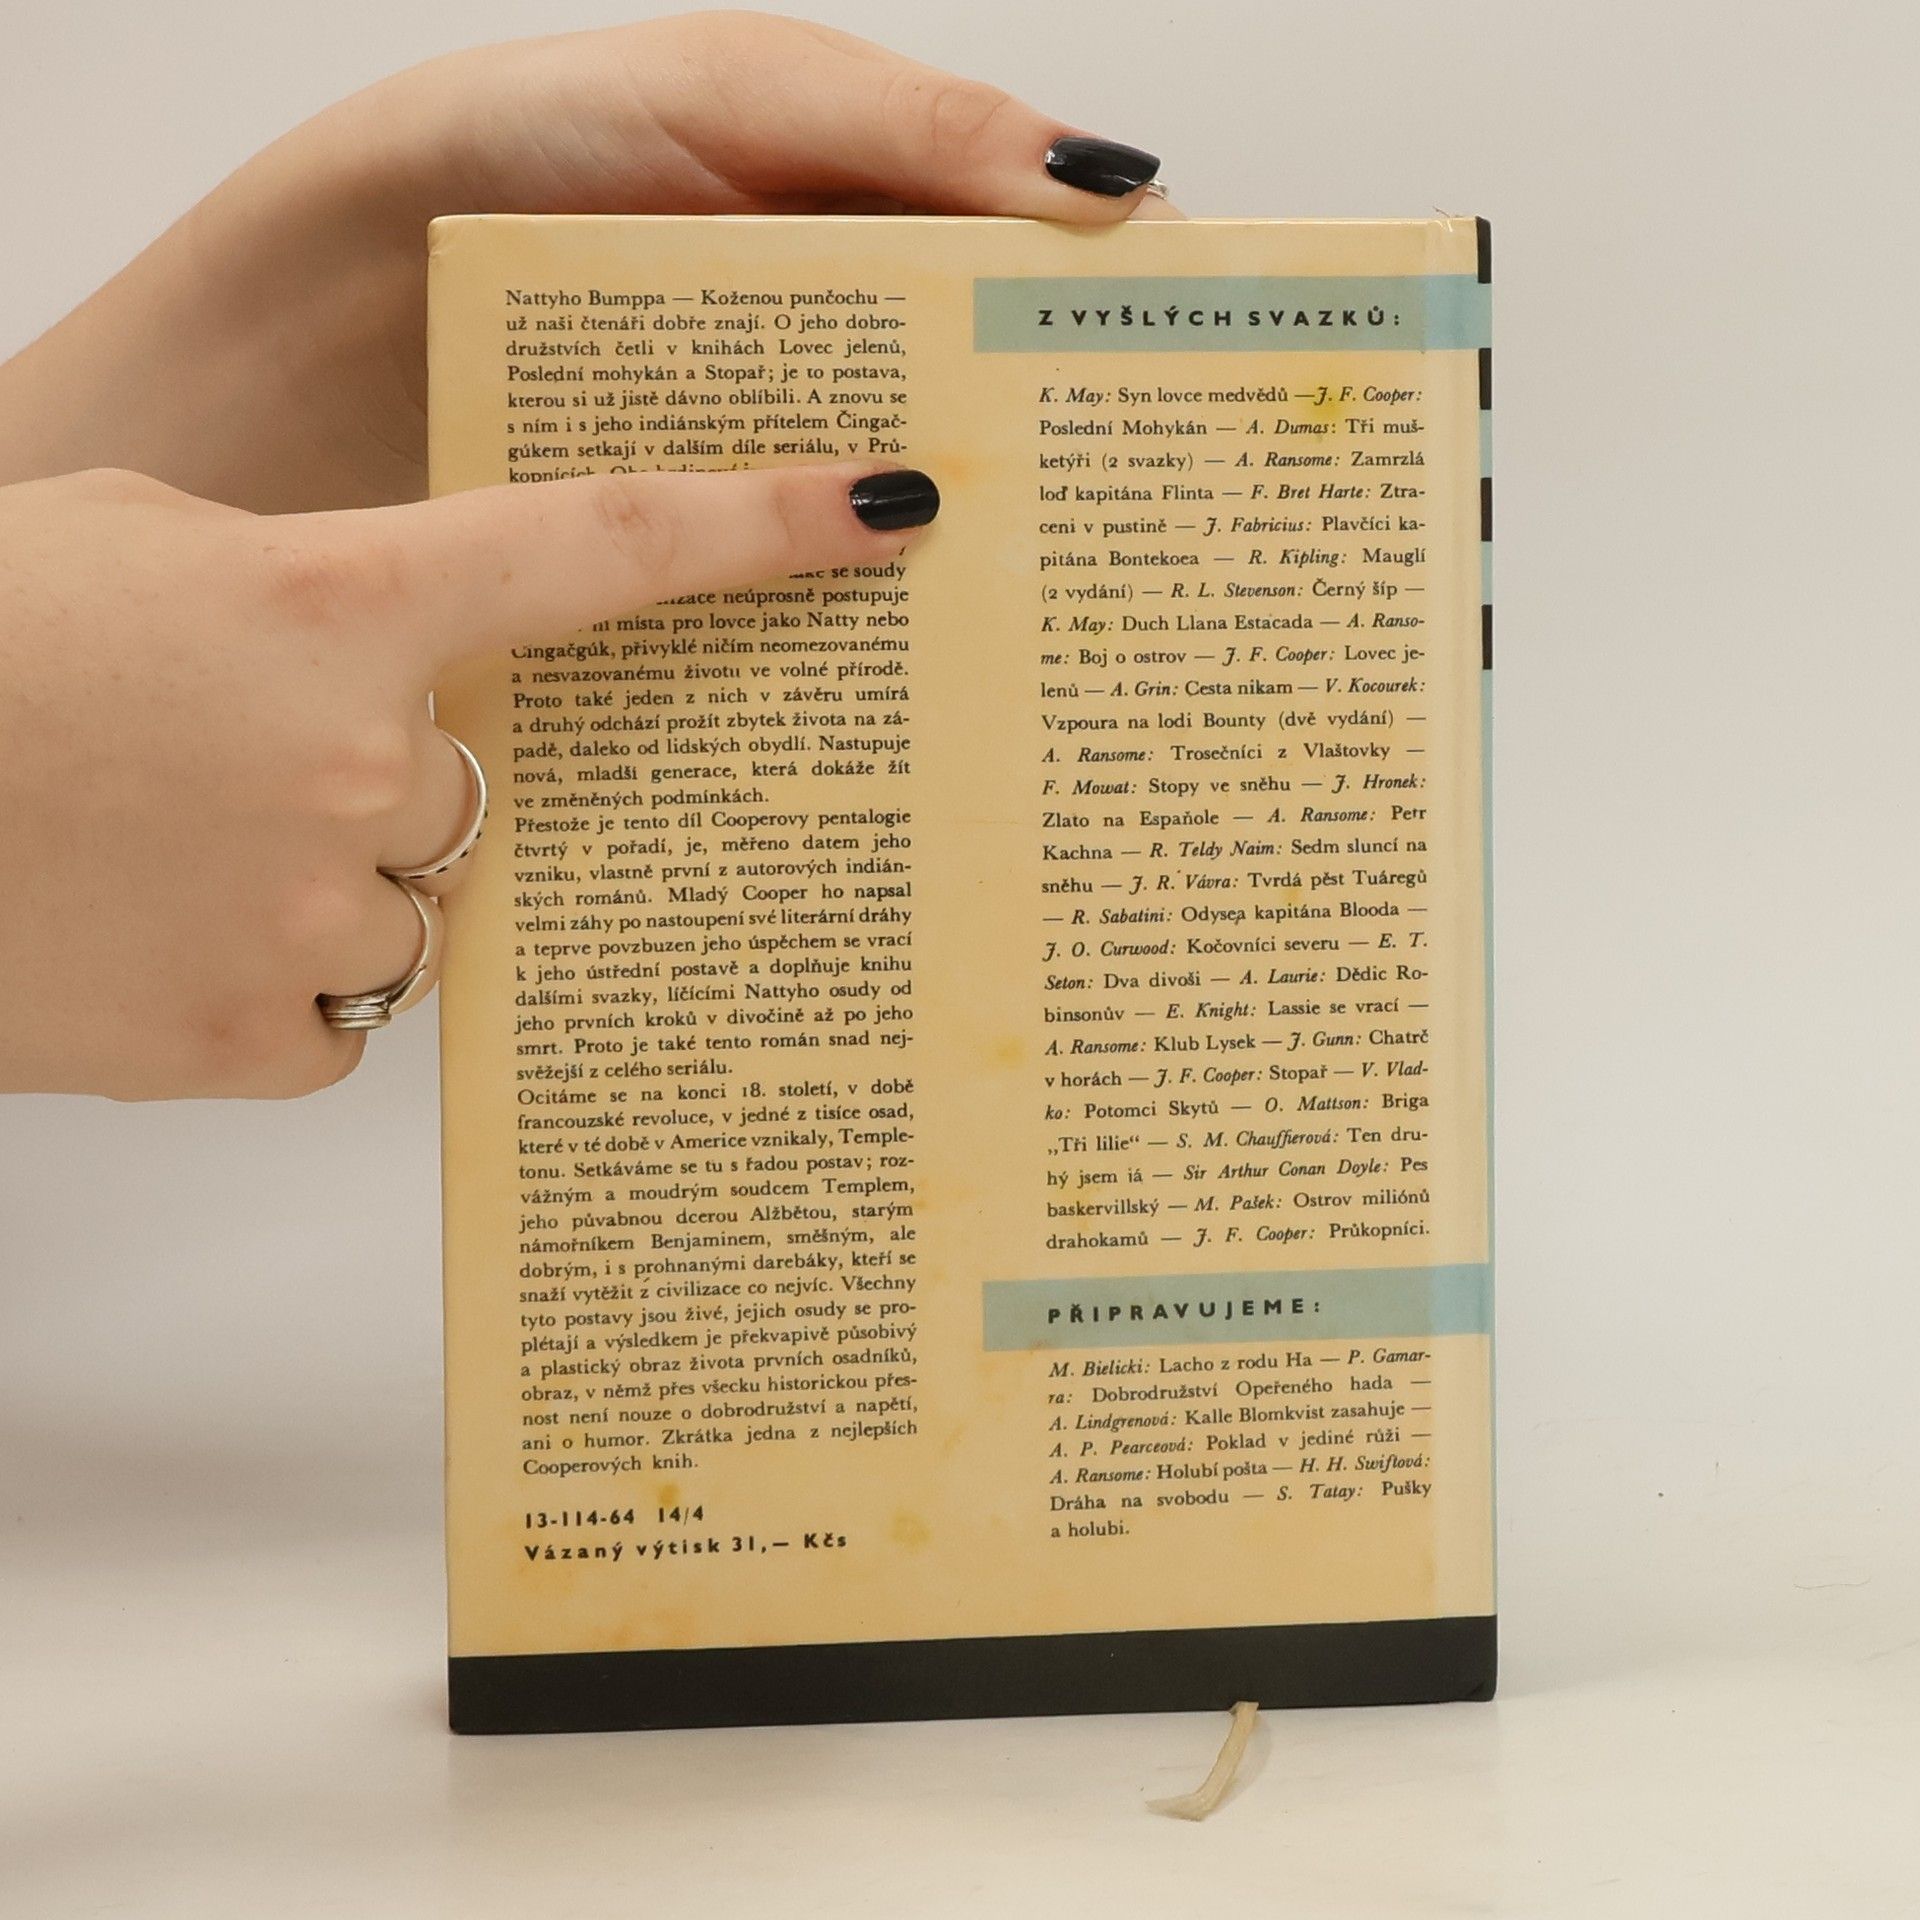 Nattyho Bumppa — Koženou punčochu —
už naši čtenáři dobře znají. O jeho dobro-
družstvích četli v knihách Lovec jelenů,
Poslední mohykán a Stopař; je to postava,
kterou si už jistě dávno oblíbili. A znovu se
s ním i s jeho indiánským přítelem Čingač-
gúkem setkají v dalším díle seriálu, v Prů-
kopnících.
se soudy
neúprosně postupuje
místa pro lovce jako Natty nebo
Čingačgúk, přivyklé ničím neomezovanému
a nesvazovanému životu ve volné přírodě.
Proto také jeden z nich v závěru umírá
a druhý odchází prožít zbytek života na zá-
padě, daleko od lidských obydlí. Nastupuje
nová, mladší generace, která dokáže žít
ve změněných podmínkách.
Přestože je tento díl Cooperovy pentalogie
čtvrtý v pořadí, je, měřeno datem jeho
vzniku, vlastně první z autorových indián-
ských románů. Mladý Cooper ho napsal
velmi záhy po nastoupení své literární dráhy
a teprve povzbuzen jeho úspěchem se vrací
k jeho ústřední postavě a doplňuje knihu
dalšími svazky, líčícími Nattyho osudy od
jeho prvních kroků v divočině až po jeho
smrt. Proto je také tento román snad nej-
svěžejší z celého seriálu.
Ocitáme se na konci 18. století, v době
francouzské revoluce, v jedné z tisíce osad,
které v té době v Americe vznikaly, Temple-
tonu. Setkáváme se tu s řadou postav; roz-
vážným a moudrým soudcem Templem,
jeho půvabnou dcerou Alžbětou, starým
námořníkem Benjaminem, směšným, ale
dobrým, i s prohnanými darebáky, kteří se
snaží vytěžit z civilizace co nejvíc. Všechny
tyto postavy jsou živé, jejich osudy se pro-
plétají a výsledkem je překvapivě působivý
a plastický obraz života prvních osadníků,
obraz, v němž přes všecku historickou přes-
nost není nouze o dobrodružství a napětí,
ani o humor. Zkrátka jedna z nejlepších
Cooperových knih.
13-114-64 14/4
Vázaný výtisk 31,— Kčs
Z VYŠLÝCH SVAZKŮ:
K. May: Syn lovce medvědů — J. F. Cooper:
Poslední Mohykán — A. Dumas: Tři muš-
ketýři (2 svazky) — A. Ransome: Zamrzlá
loď kapitána Flinta — F. Bret Harte: Ztra-
ceni v pustině — J. Fabricius: Plavčíci ka-
pitána Bontekoea — R. Kipling: Mauglí
(2 vydání) — R. L. Stevenson: Černý šíp —
K. May: Duch Llana Estacada — A. Ranso-
me: Boj o ostrov — J. F. Cooper: Lovec je-
lenů — A. Grin: Cesta nikam — V. Kocourek:
Vzpoura na lodi Bounty (dvě vydání) —
A. Ransome: Trosečníci z Vlaštovky —
F. Mowat: Stopy ve sněhu — J. Hronek:
Zlato na Españole — A. Ransome: Petr
Kachna — R. Teldy Naim: Sedm sluncí na
sněhu — J. R. Vávra: Tvrdá pěst Tuáregů
— R. Sabatini: Odysea kapitána Blooda —
J. O. Curwood: Kočovníci severu — E. T.
Seton: Dva divoši — A. Laurie: Dědic Ro-
binsonův — E. Knight: Lassie se vrací —
A. Ransome: Klub Lysek — J. Gunn: Chatrč
v horách — J. F. Cooper: Stopař — V. Vlad-
ko: Potomci Skytů — O. Mattson: Briga
„Tři lilie“ — S. M. Chauffierová: Ten dru-
hý jsem já — Sir Arthur Conan Doyle: Pes
baskervillský — M. Pašek: Ostrov miliónů
drahokamů — J. F. Cooper: Průkopníci.
PŘIPRAVUJEME:
M. Bielicki: Lacho z rodu Ha — P. Gamar-
ra: Dobrodružství Opeřeného hada —
A. Lindgrenová: Kalle Blomkvist zasahuje —
A. P. Pearceová: Poklad v jediné růži —
A. Ransome: Holubí pošta — H. H. Swiftová:
Dráha na svobodu — S. Tatay: Pušky
a holubi.